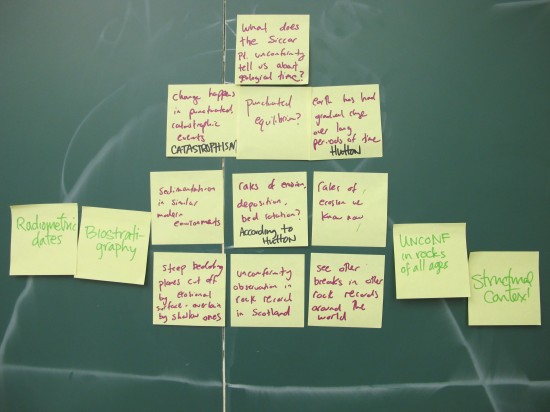 What does
the Siccar
Pt. unconformity
tell us about
geological time?
Change happens
in punctuated
catastrophic
events
CATASTROPHISM
punctuated
equilibrium?
earth has had
gradual change
over long
periods of time
HUTTON
sedimentation
in similar
modern
environments
rates of erosion,
deposition,
bed rotation?
According to
HUTTON
Rates of
erosion we
know now
Radiometric
dates
Biostrati-
graphy
steep bedding
planes cut off
by erosional
surface - overlain
by shallow ones
unconformity
observation in
rock record
in Scotland
see other
breaks in other
rock records
around the
world
UNCONF
in rocks
of all ages
Structural
Context